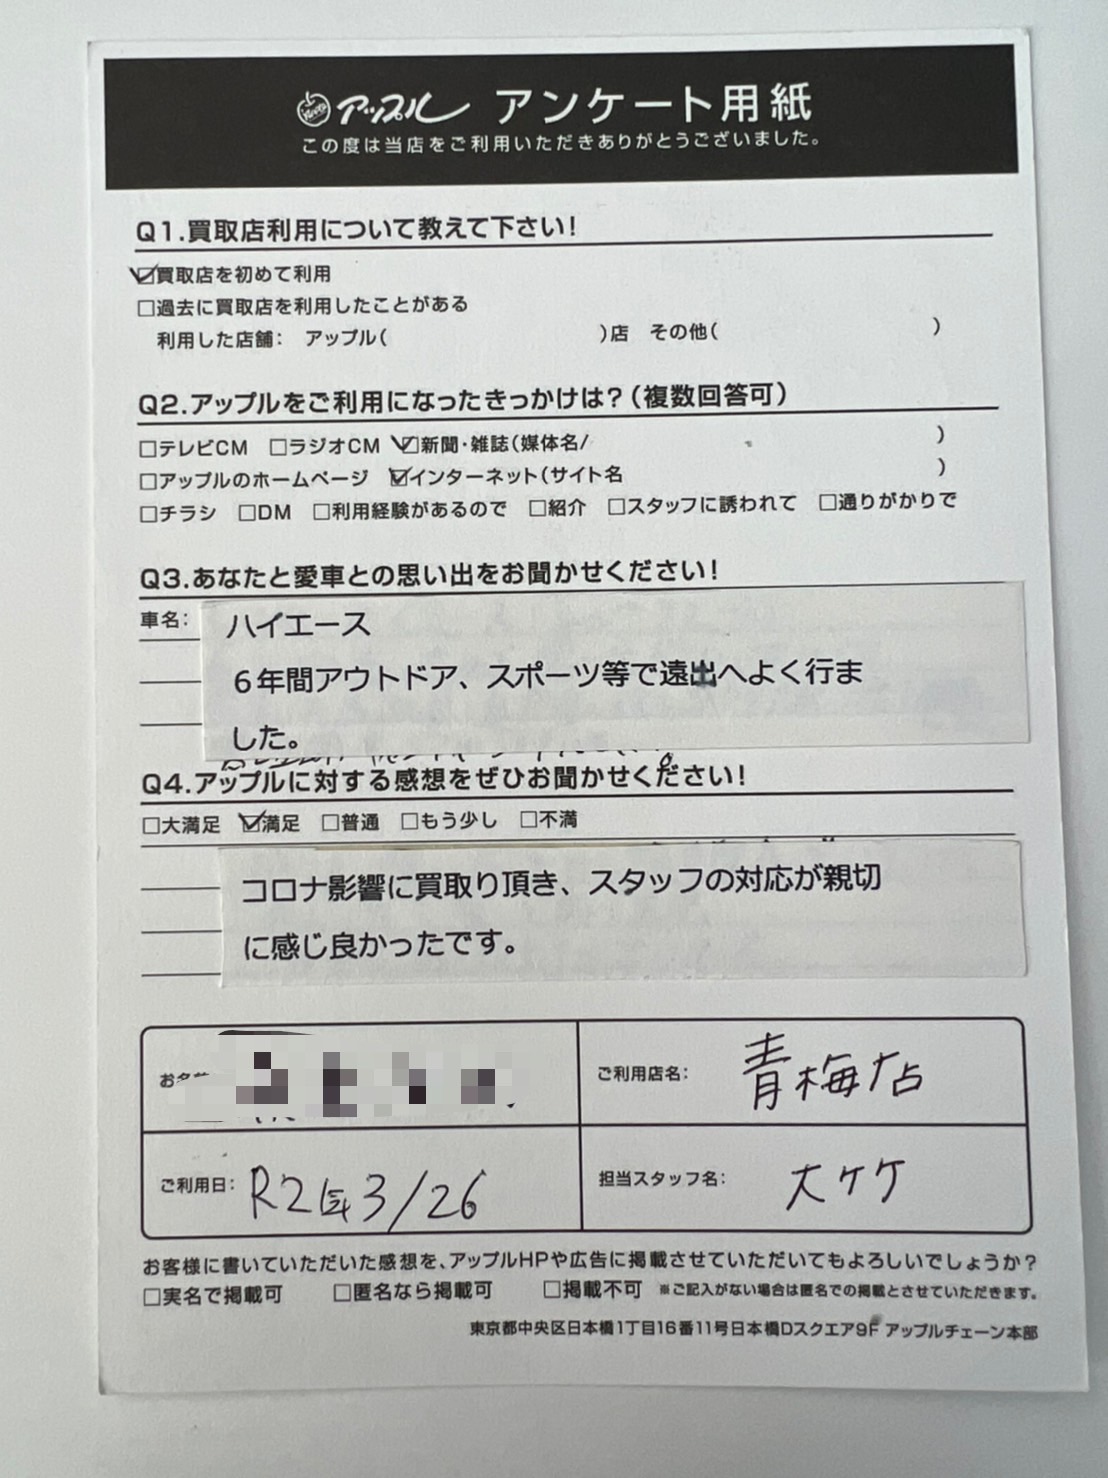 アップル アンケート用紙
この度は当店をご利用いただきありがとうございました。
Q1.買取店利用について教えて下さい!
☑買取店を初めて利用
□過去に買取店を利用したことがある
利用した店舗: アップル( )店 その他( )
Q2.アップルをご利用になったきっかけは?(複数回答可)
□テレビCM □ラジオCM ☑新聞・雑誌(媒体名/ )
□アップルのホームページ ☑インターネット(サイト名 )
□チラシ □DM □利用経験があるので □紹介 □スタッフに誘われて □通りがかりで
Q3.あなたと愛車との思い出をお聞かせください!
車名: ハイエース
6年間アウトドア、スポーツ等で遠出へよく行ま
した。
Q4.アップルに対する感想をぜひお聞かせください!
□大満足 ☑満足 □普通 □もう少し □不満
コロナ影響に買取り頂き、スタッフの対応が親切
に感じ良かったです。
ご利用店名: 青梅店
ご利用日: R2年3/26
担当スタッフ名: 大ケケ
お客様に書いていただいた感想を、アップルHPや広告に掲載させていただいてもよろしいでしょうか?
□実名で掲載可 □匿名なら掲載可 □掲載不可 ※ご記入がない場合は匿名での掲載とさせていただきます。
東京都中央区日本橋1丁目16番11号日本橋Dスクエア9F アップルチェーン本部